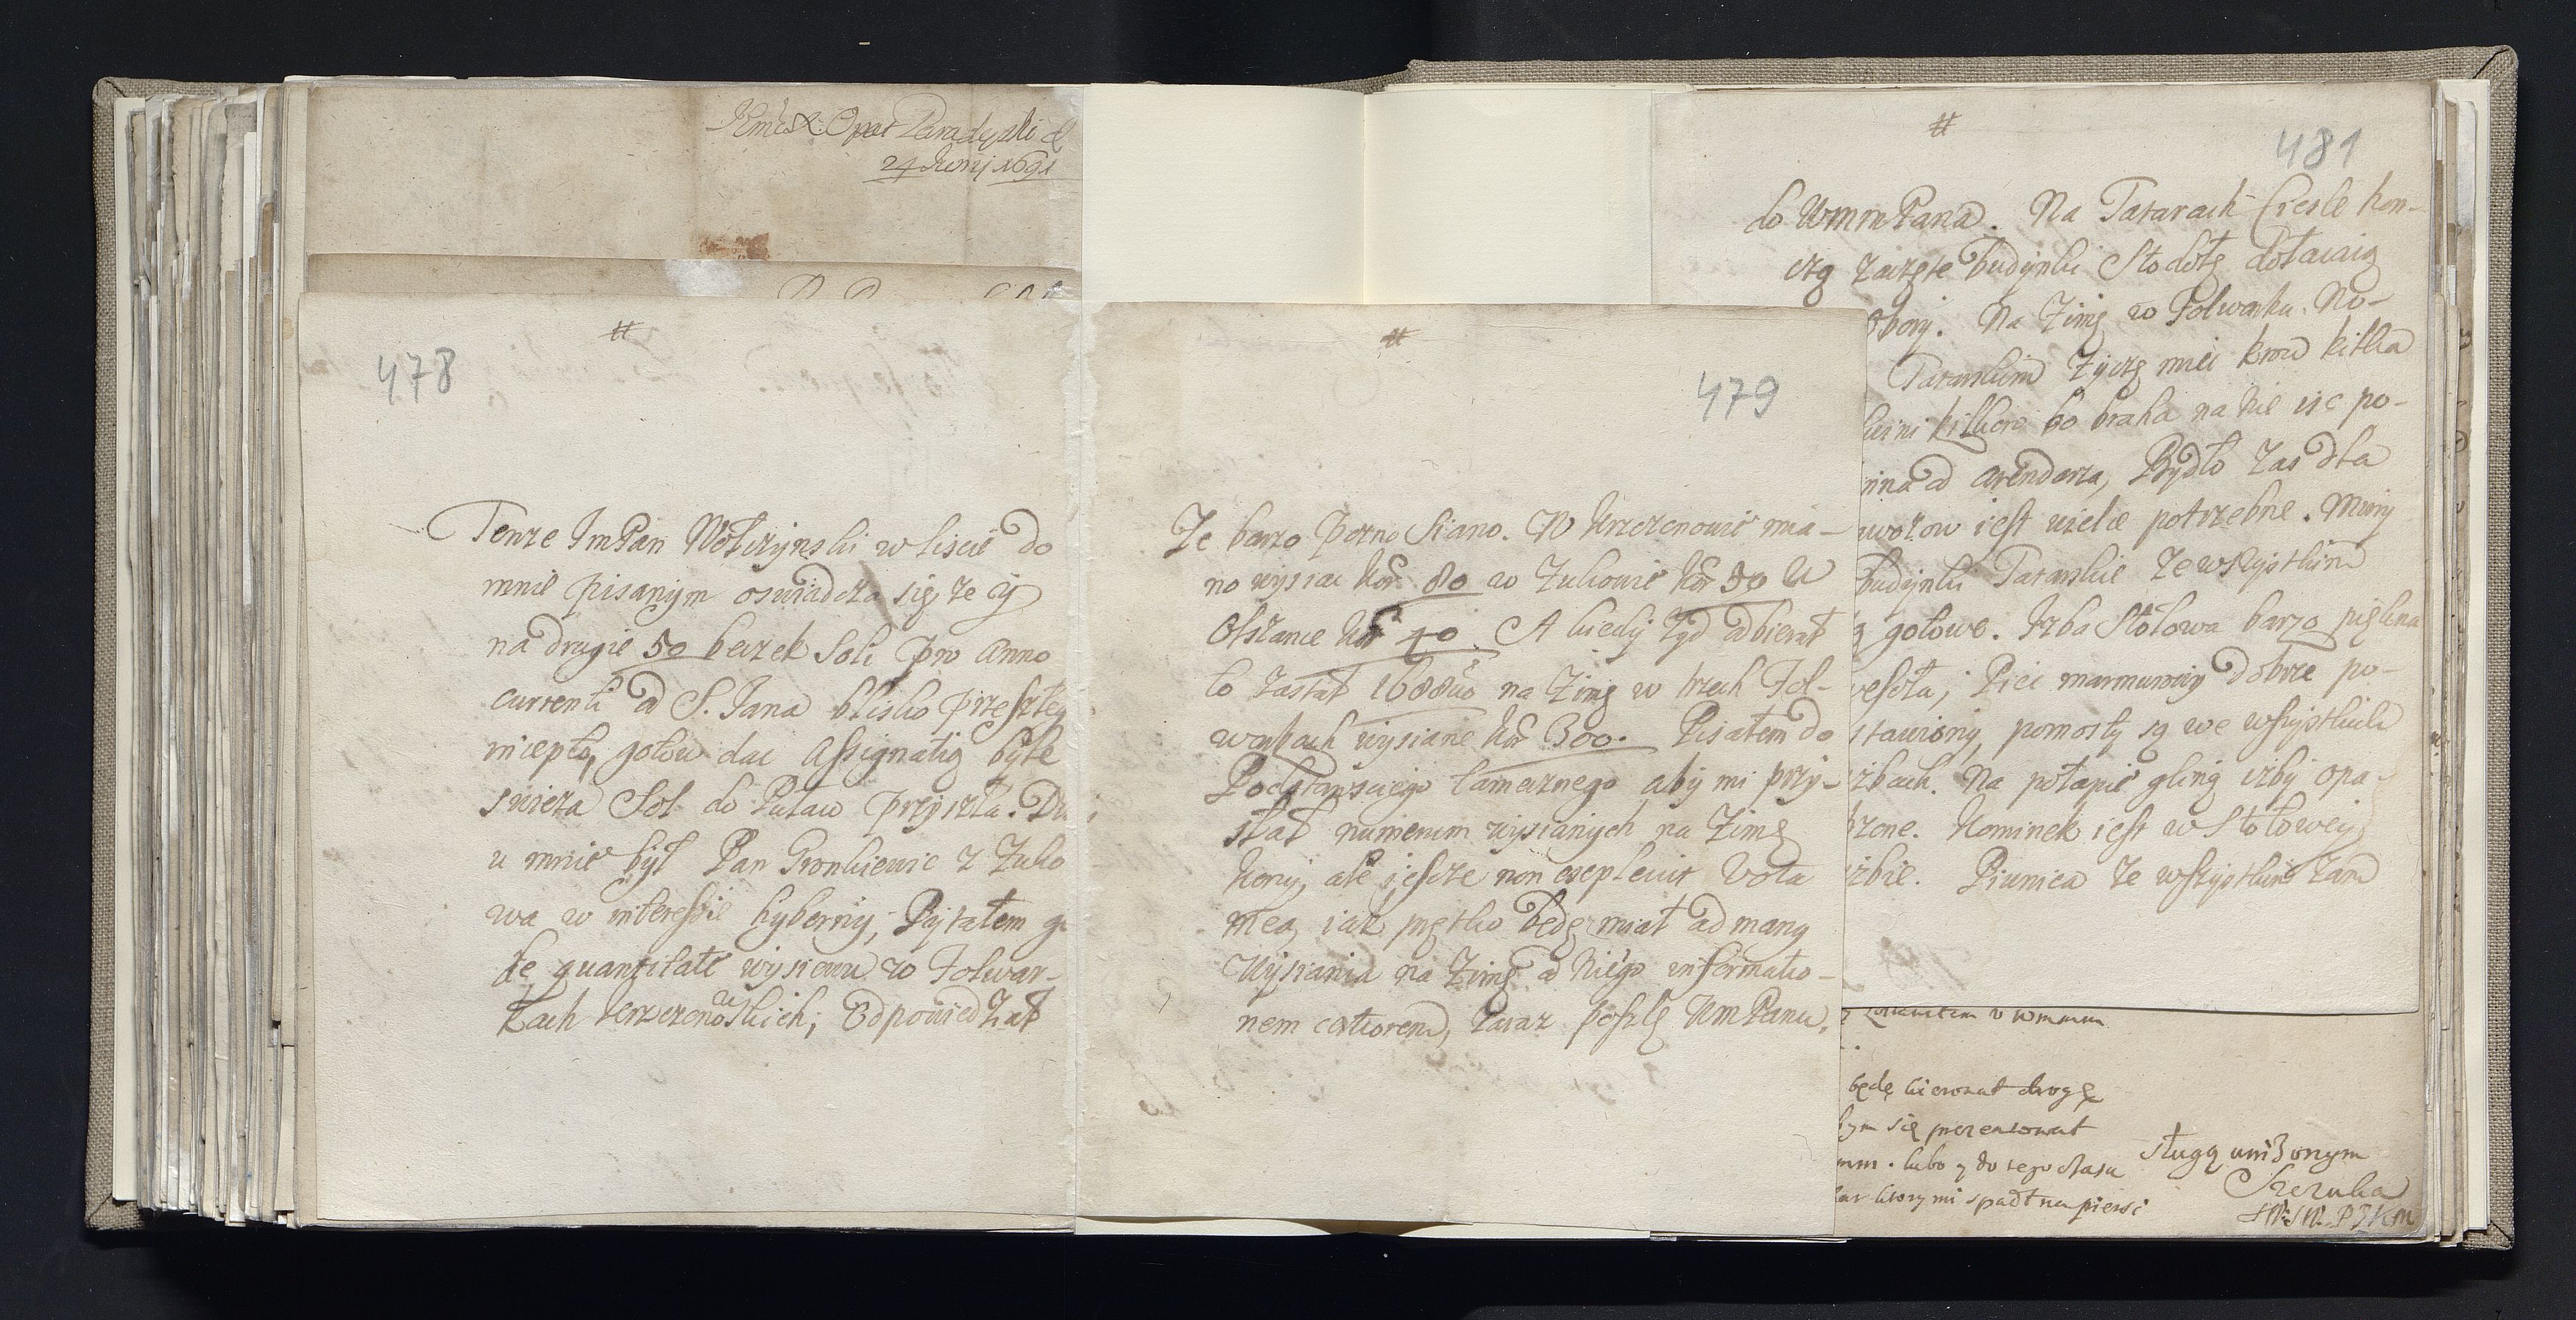 Opat Paradyski
24 Junij 1691
#
478
Tenze ImPan Wolczynski w liscie do
mnie pisanym oswiadcza się ze y
na drugie 50 beczek Soli pro Anno
currenti od S. Jana blisko przeszłeg
incepto, gotow dac Assignatią byle
swieza Sol do Puław przyszła. Du
u mnie był Pan Gronkiewic z Zuko
wa w interessie hyberny, Pytałem go
de quantitate wysiewu w Folwar-
kach krzczonowskich; Odpowiedział
#
479
Ze barzo pozno Siano. W Krzczonowie mia-
no wysiac kor 80 w Zukowie kor 50 W
Olszance kor 40. A kiedy Zyd odbierał
to zastał 1688uo na Zimę w trzech Fol-
warkach wysiane kor 300. Pisałem do
Podstarsciego tamecznego aby mi przy-
słał numerum wysianych na Zimę
korcy, ale iescze non explevit Vota
mea, iak prętko będę miał od mang
Wysiania na Zimę od niego informatio-
nem certiorem, zaraz poszlę WmPanu.
#
481
do WmmPana. Na Tatarach Ciesle kon-
czą zaczęte budynki Stodołę dołacaią
obory. Na Zimę w Folwarku No-
Tatarskim Zyczę miec krow kilka
kilkoro bo braha na nie isc po-
inna od arendarza, Bydło zas dla
uwozow iest wielce potrzebne. Mamy
budynki Tatarskie ze wszystkim
gotowe. Izba Stołowa barzo piękna
wesoła, Piec marmurowy dobrze po-
stawiony, pomosty są we wszystkich
izbach. Na połapie gliną izby opa-
trzone. Kominek iest w Stołowey
izbie. Piwnica ze wszystkim tam
będę kierował drogę
bym się prezentował
mm. lubo y do tego czasu
ktory mi spadł na piersi
sługą unizonym
Szczuka